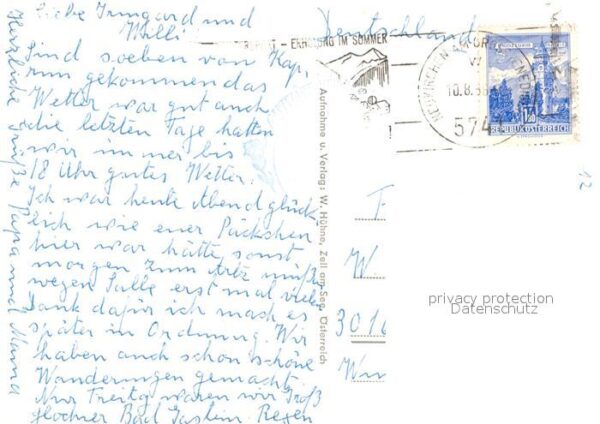 Liebe Irmgard und
Willi
Sind soeben von Kap.
rum gekommen das
Wetter war gut auch
die letzten Tage hatten
wir immer bis
18 Uhr gutes Wetter.
Ich war heute Abend glück
lich wie euer Päckchen
hier war hätte sonst
morgen zum Arzt müße
wegen Salbe erst mal vielen
Dank dafür ich mach es
später in Ordnung. Wir
haben auch schon schöne
Wanderungen gemacht.
Nur Freitag waren wir Groß
glockner Bad Gastein Regen
Herzliche Grüße Papa und Mama
Deutschland
ERHOLUNG IM SOMMER
NEUKIRCHEN AM GROSSVENEDIGER
10.8.
5741
REPUBLIK ÖSTERREICH
Aufnahme u. Verlag: W. Hühne, Zell am See, Österreich
F
W
3016
Wu
12
privacy protection
Datenschutz